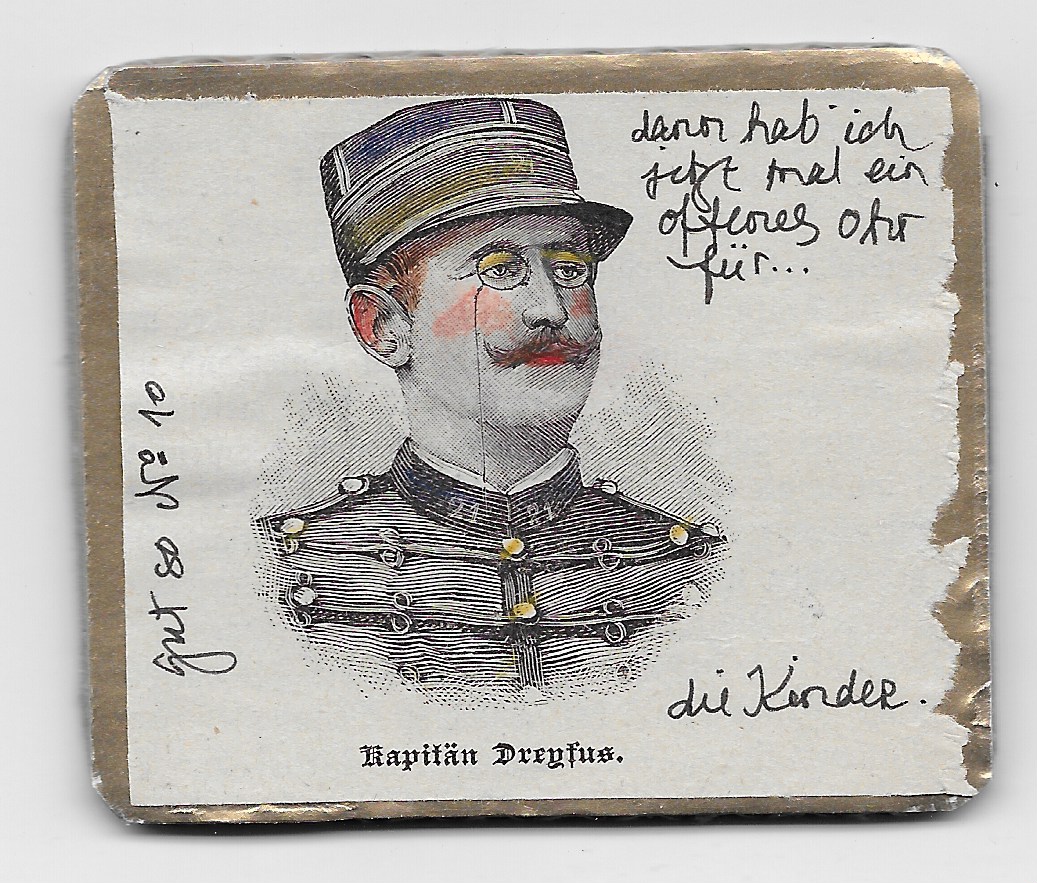 dann hab ich
jetzt mal ein
offenes Ohr
für...
gut so No 10
die Kinder.
Kapitän Dreyfus.